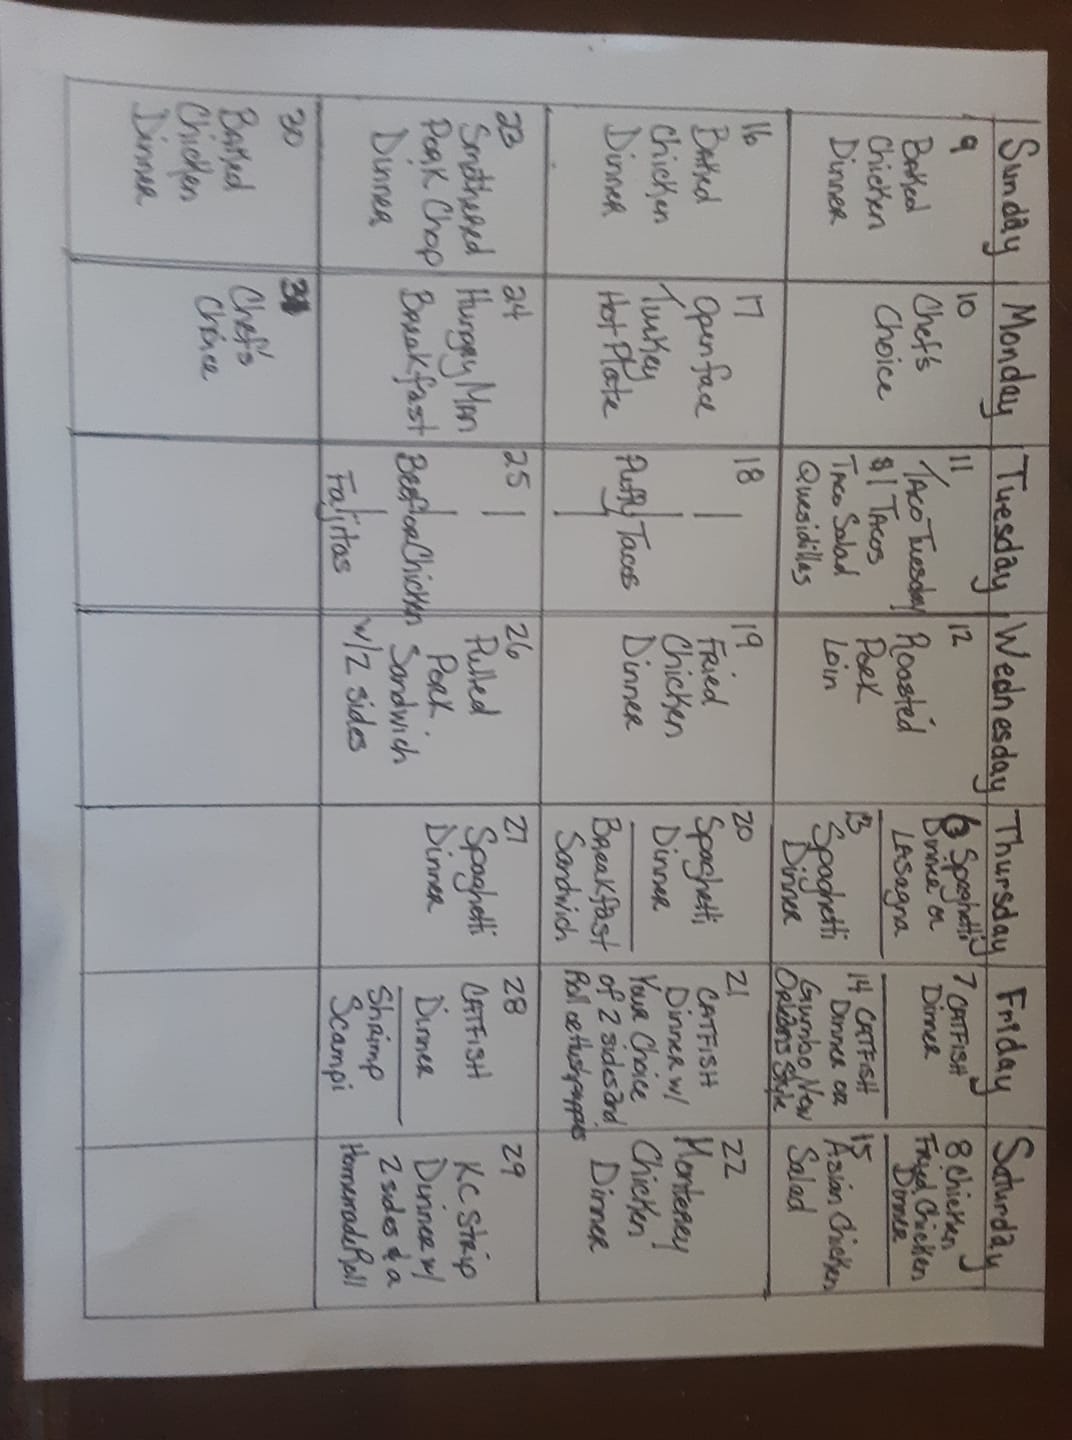 Sunday
Monday
Tuesday
Wednesday
Thursday
Friday
Saturday
6 Spaghetti
Dinner or
LASagna
7 CATFISH
Dinner
8 Chicken
Fried Chicken
Dinner
9
BAKED
Chicken
Dinner
10
Chef's
Choice
11
TACO Tuesday
$1 TACOS
TACO Salad
Quesidillas
12
Roasted
Pork
Loin
13
Spaghetti
Dinner
14 CATFISH
Dinner or
Gumbo New
Orleans Style
15
Asian Chicken
Salad
16
BAKED
Chicken
Dinner
17
Open face
Turkey
Hot Plate
18
Puffy Tacos
19
FRied
Chicken
Dinner
20
Spaghetti
Dinner
Breakfast
Sandwich
21
CATFISH
Dinner w/
Your Choice
of 2 sides and
Roll or Hushpuppies
22
Monterey
Chicken
Dinner
23
Smothered
Pork Chop
Dinner
24
Hungry Man
Breakfast
25
Beef or Chicken
Fajitas
26
Pulled
Pork
Sandwich
w/2 sides
27
Spaghetti
Dinner
28
CATFISH
Dinner
Shrimp
Scampi
29
KC Strip
Dinner w/
2 sides & a
Homemade Roll
30
BAKED
Chicken
Dinner
31
Chef's
Choice